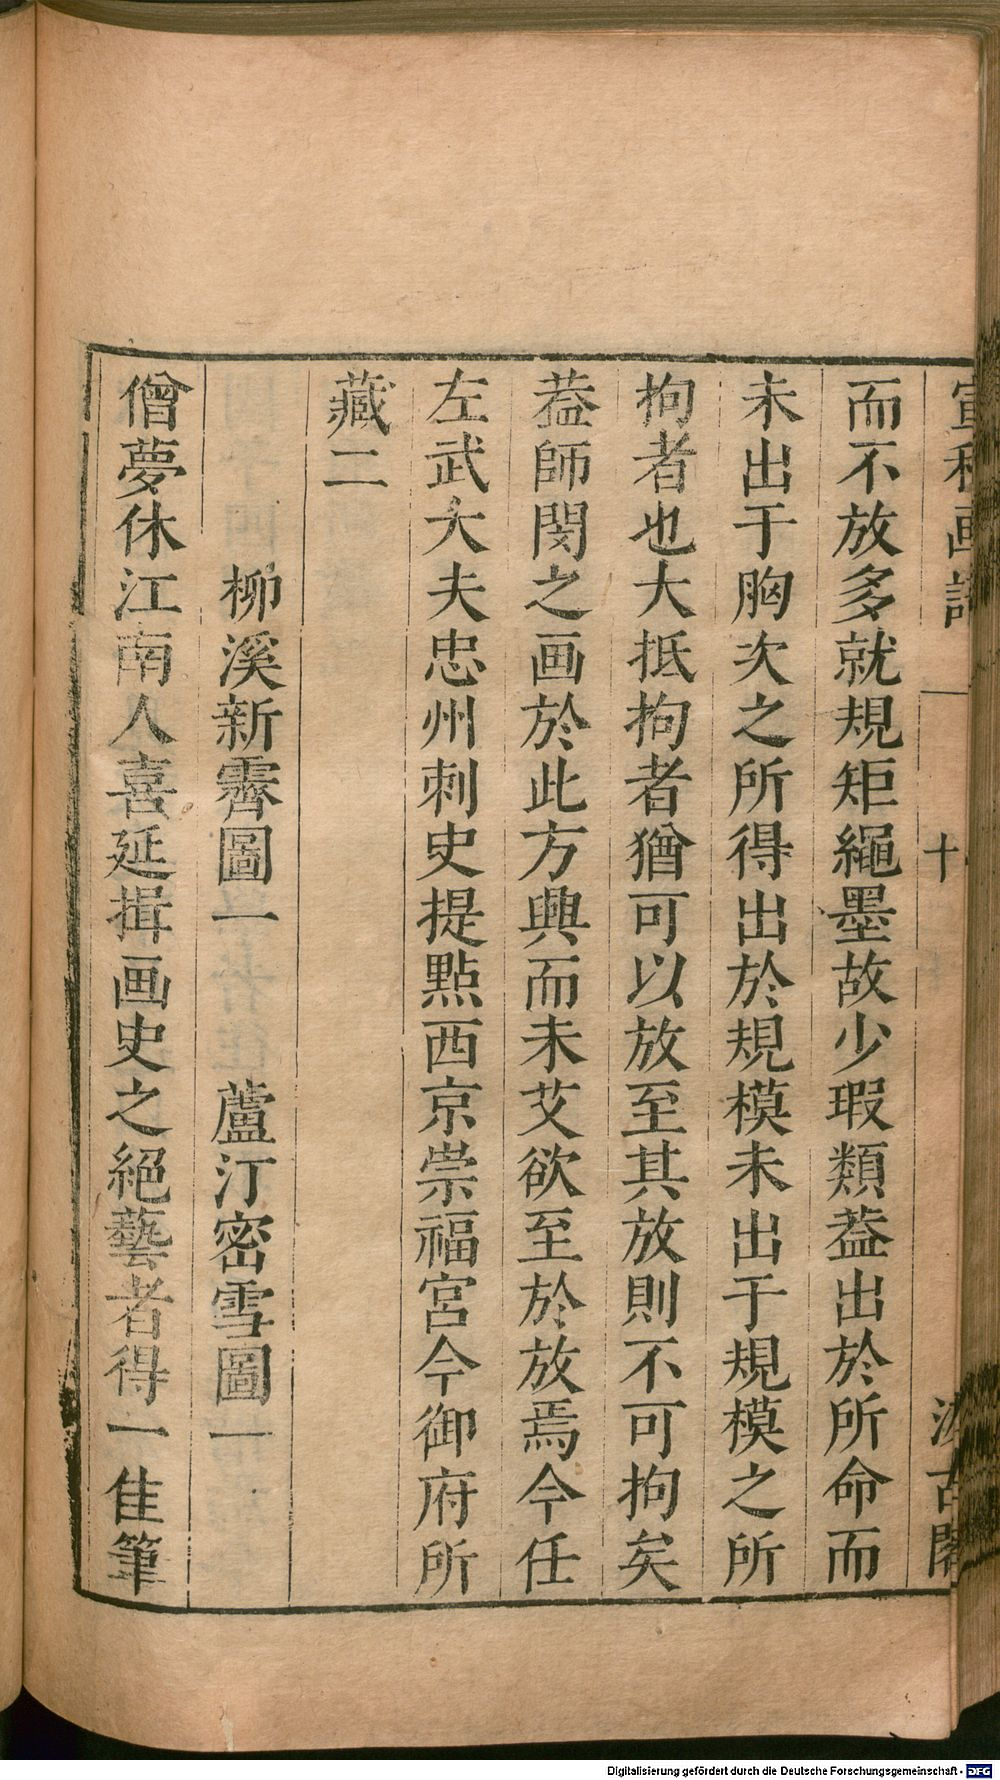 宣和画譜 十 汲古閣
而不放多就規矩繩墨故少瑕類葢出於所命而
未出于胸次之所得出於規模未出于規模之所
拘者也大抵拘者猶可以放至其放則不可拘矣
葢師閔之画於此方興而未艾欲至於放焉今任
左武大夫忠州刺史提點西京崇福宮今御府所
藏二
柳溪新霽圖一 蘆汀密雪圖一
僧夢休江南人喜延揖画史之絕藝者得一佳筆
Digitalisierung gefördert durch die Deutsche Forschungsgemeinschaft - DFG